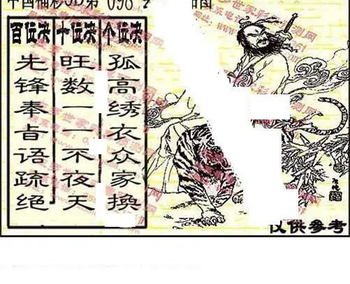 中国福彩3D第 098
百位决
先锋奉旨语疏绝
十位决
旺数一一不夜天
个位决
孤高绣衣众家换
以供参考